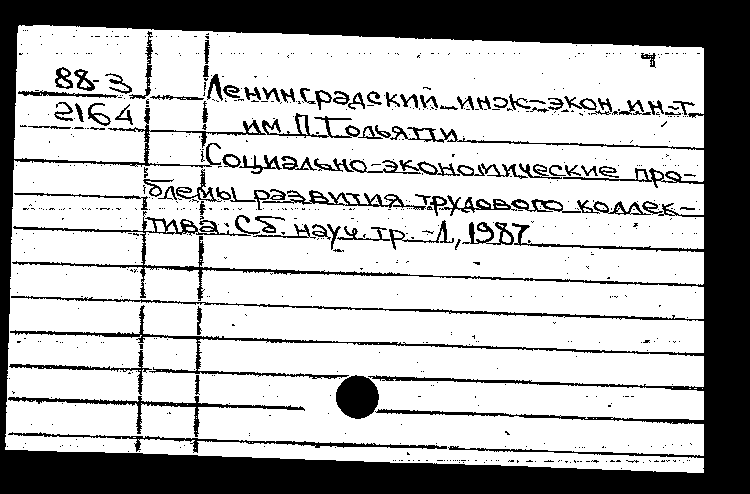 ч
88-3 Ленинградский инж-экон. ин-т
2164 им. П. Тольятти.
Социально-экономические про-
блемы развития трудового коллек-
тива: Сб. науч. тр. - Л., 1987.